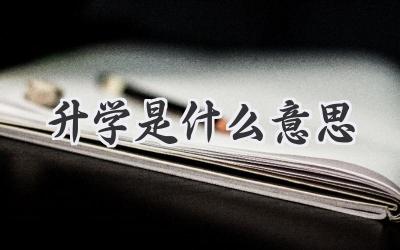 升学是什么意思